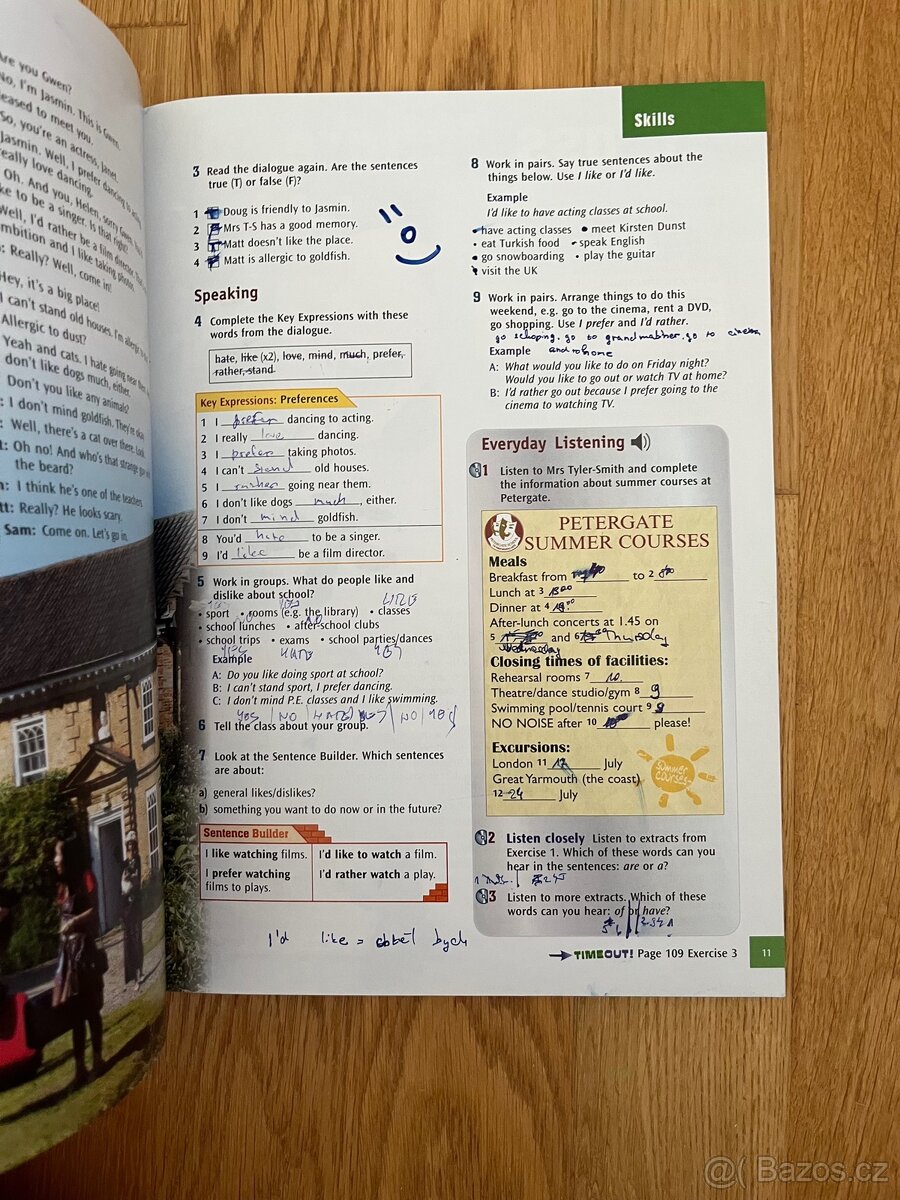 Are you Gwen?
No, I'm Jasmin. This is Gwen.
eased to meet you.
So, you're an actress, Janet.
Jasmin. Well, I prefer dancing to acting
really love dancing.
Oh. And you, Helen, sorry Gwen.
ke to be a singer. Is that right?
Well, I'd rather be a film director.
mbition and I like taking photos.
: Really? Well, come in!
Hey, it's a big place!
I can't stand old houses. I'm allergic
Allergic to dust?
Yeah and cats. I hate going near them.
don't like dogs much, either.
Don't you like any animals?
: I don't mind goldfish. They're okay
: Well, there's a cat over there. Look.
t: Oh no! And who's that strange guy
the beard?
n: I think he's one of the teachers.
tt: Really? He looks scary.
Sam: Come on. Let's go in.
Skills
3 Read the dialogue again. Are the sentences
true (T) or false (F)?
1 Doug is friendly to Jasmin.
2 Mrs T-S has a good memory.
3 Matt doesn't like the place.
4 Matt is allergic to goldfish.
Speaking
4 Complete the Key Expressions with these
words from the dialogue.
hate, like (x2), love, mind, much, prefer,
rather, stand
Key Expressions: Preferences
1 I prefer dancing to acting.
2 I really love dancing.
3 I prefer taking photos.
4 I can't stand old houses.
5 I rather going near them.
6 I don't like dogs much, either.
7 I don't mind goldfish.
8 You'd hate to be a singer.
9 I'd like be a film director.
5 Work in groups. What do people like and
dislike about school?
YES YES LIKE
• sport • rooms (e.g. the library) • classes
NO
• school lunches • after-school clubs
• school trips • exams • school parties/dances
YES HATE YES
Example
A: Do you like doing sport at school?
B: I can't stand sport, I prefer dancing.
C: I don't mind P.E. classes and I like swimming.
YES | NO | HATE | YES | NO | YES
6 Tell the class about your group.
7 Look at the Sentence Builder. Which sentences
are about:
a) general likes/dislikes?
b) something you want to do now or in the future?
Sentence Builder
I like watching films. I'd like to watch a film.
I prefer watching I'd rather watch a play.
films to plays.
I'd like = chtěl bych
8 Work in pairs. Say true sentences about the
things below. Use I like or I'd like.
Example
I'd like to have acting classes at school.
• have acting classes • meet Kirsten Dunst
• eat Turkish food • speak English
• go snowboarding • play the guitar
• visit the UK
9 Work in pairs. Arrange things to do this
weekend, e.g. go to the cinema, rent a DVD,
go shopping. Use I prefer and I'd rather.
go schoping, go to grandmather, go to cinema
Example and home
A: What would you like to do on Friday night?
Would you like to go out or watch TV at home?
B: I'd rather go out because I prefer going to the
cinema to watching TV.
Everyday Listening
1 Listen to Mrs Tyler-Smith and complete
the information about summer courses at
Petergate.
PETERGATE
SUMMER COURSES
Meals
Breakfast from 1 to 2
Lunch at 3 1300
Dinner at 4
After-lunch concerts at 1.45 on
5 and 6 Thursday
Wednesday
Closing times of facilities:
Rehearsal rooms 7 10
Theatre/dance studio/gym 8 9
Swimming pool/tennis court 9 8
NO NOISE after 10 please!
Excursions:
London 11 17 July
Great Yarmouth (the coast)
12 24 July
summer
courses
2 Listen closely Listen to extracts from
Exercise 1. Which of these words can you
hear in the sentences: are or a?
3 Listen to more extracts. Which of these
words can you hear: of or have?
TIMEOUT! Page 109 Exercise 3
11
@( Bazos.cz